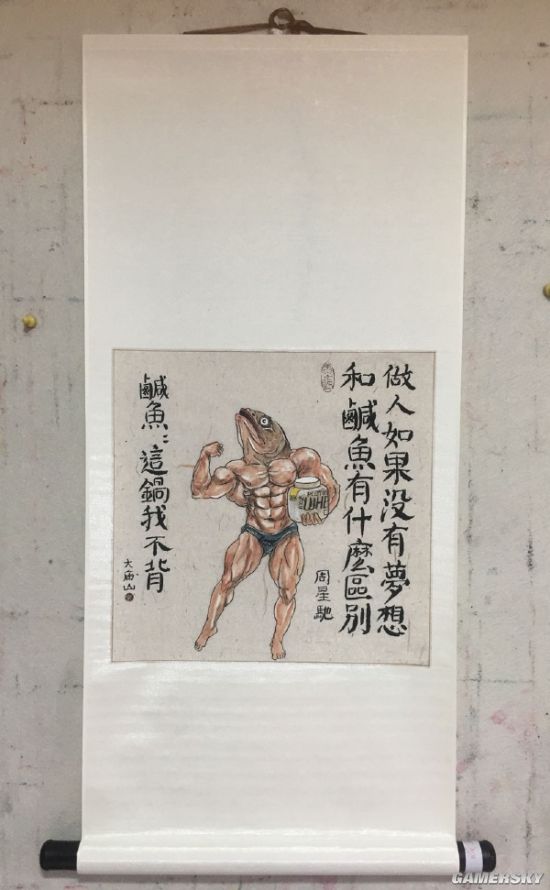 做人如果没有夢想
和鹹魚有什麼區別
周星馳
鹹魚：這鍋我不背
大庙山
GAMERSKY